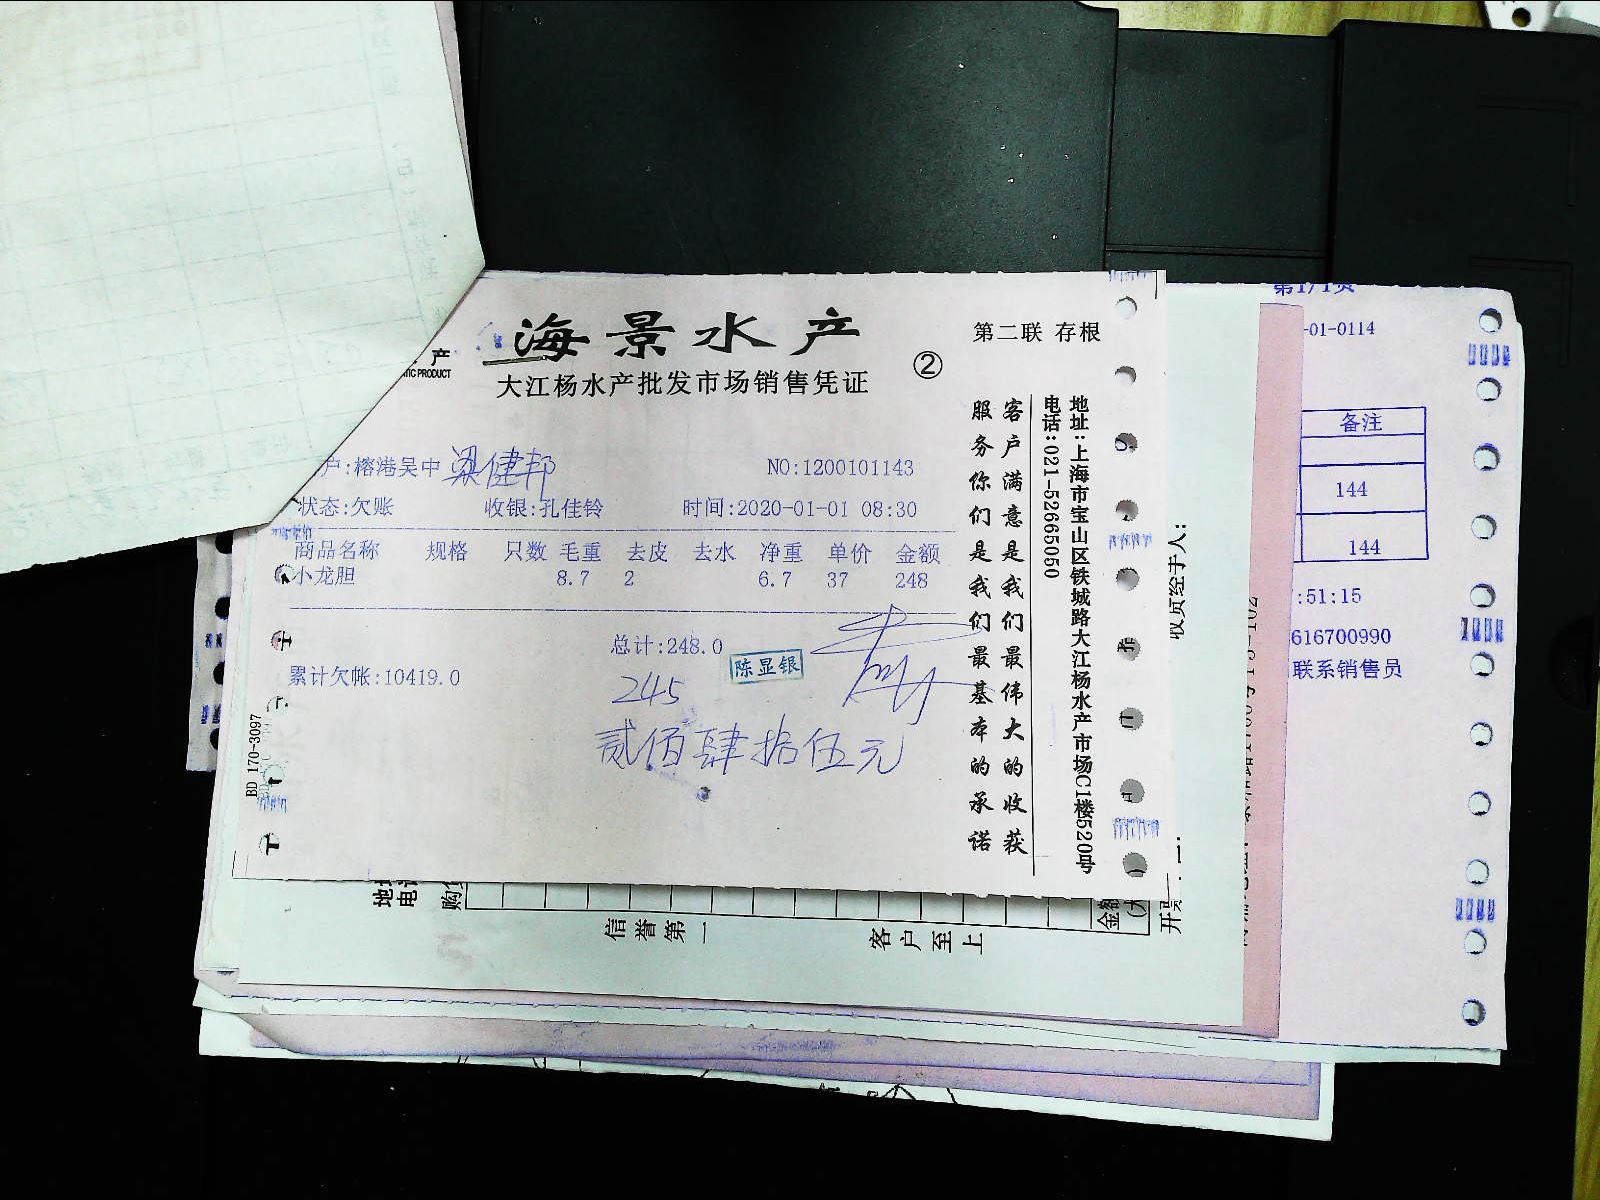 海景水产
第二联 存根
产
TIC PRODUCT
大江杨水产批发市场销售凭证
②
户:榕港吴中 梁健邦
NO:1200101143
状态:欠账 收银:孔佳铃 时间:2020-01-01 08:30
商品名称 规格 只数 毛重 去皮 去水 净重 单价 金额
小龙胆 8.7 2 6.7 37 248
总计:248.0
陈显银
累计欠帐:10419.0
245
贰佰肆拾伍元
BD 170-3097
客户满意是我们最伟大的收获
服务你们是我们最基本的承诺
地址:上海市宝山区铁城路大江杨水产市场C1楼520号
电话:021-52665050
第1/1页
-01-0114
备注
144
144
:51:15
616700990
联系销售员
收货经手人:
信誉第一
客户至上
电话